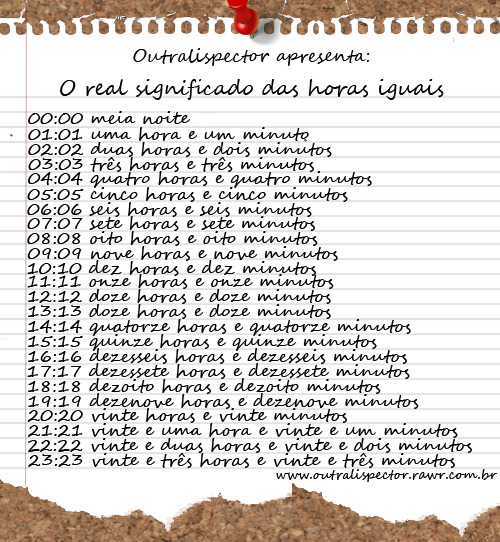 Outralispector apresenta:
O real significado das horas iguais
00:00 meia noite
01:01 uma hora e um minuto
02:02 duas horas e dois minutos
03:03 três horas e três minutos
04:04 quatro horas e quatro minutos
05:05 cinco horas e cinco minutos
06:06 seis horas e seis minutos
07:07 sete horas e sete minutos
08:08 oito horas e oito minutos
09:09 nove horas e nove minutos
10:10 dez horas e dez minutos
11:11 onze horas e onze minutos
12:12 doze horas e doze minutos
13:13 doze horas e doze minutos
14:14 quatorze horas e quatorze minutos
15:15 quinze horas e quinze minutos
16:16 dezesseis horas e dezesseis minutos
17:17 dezessete horas e dezessete minutos
18:18 dezoito horas e dezoito minutos
19:19 dezenove horas e dezenove minutos
20:20 vinte horas e vinte minutos
21:21 vinte e uma hora e vinte e um minutos
22:22 vinte e duas horas e vinte e dois minutos
23:23 vinte e três horas e vinte e três minutos
www.outralispector.rawr.com.br